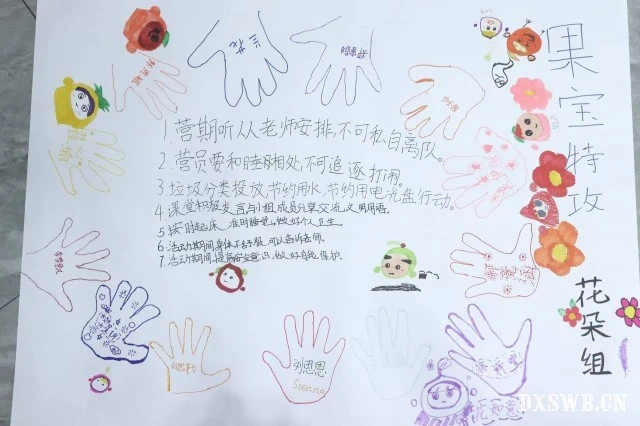 果宝特攻
花朵组
1 营期听从老师安排,不可私自离队。
2. 营员要和睦相处,不可追逐打闹。
3 垃圾分类投放,节约用水,节约用电光盘行动。
4 课堂积极发言与小组成员分享交流,文明用语。
5 按时起床,准时睡觉,做好个人卫生。
6. 活动期间身体不舒服,可以告诉老师。
7. 活动期间提高安全意识,做好自我保护。
刘思恩
Sienna
DXSWB.CN